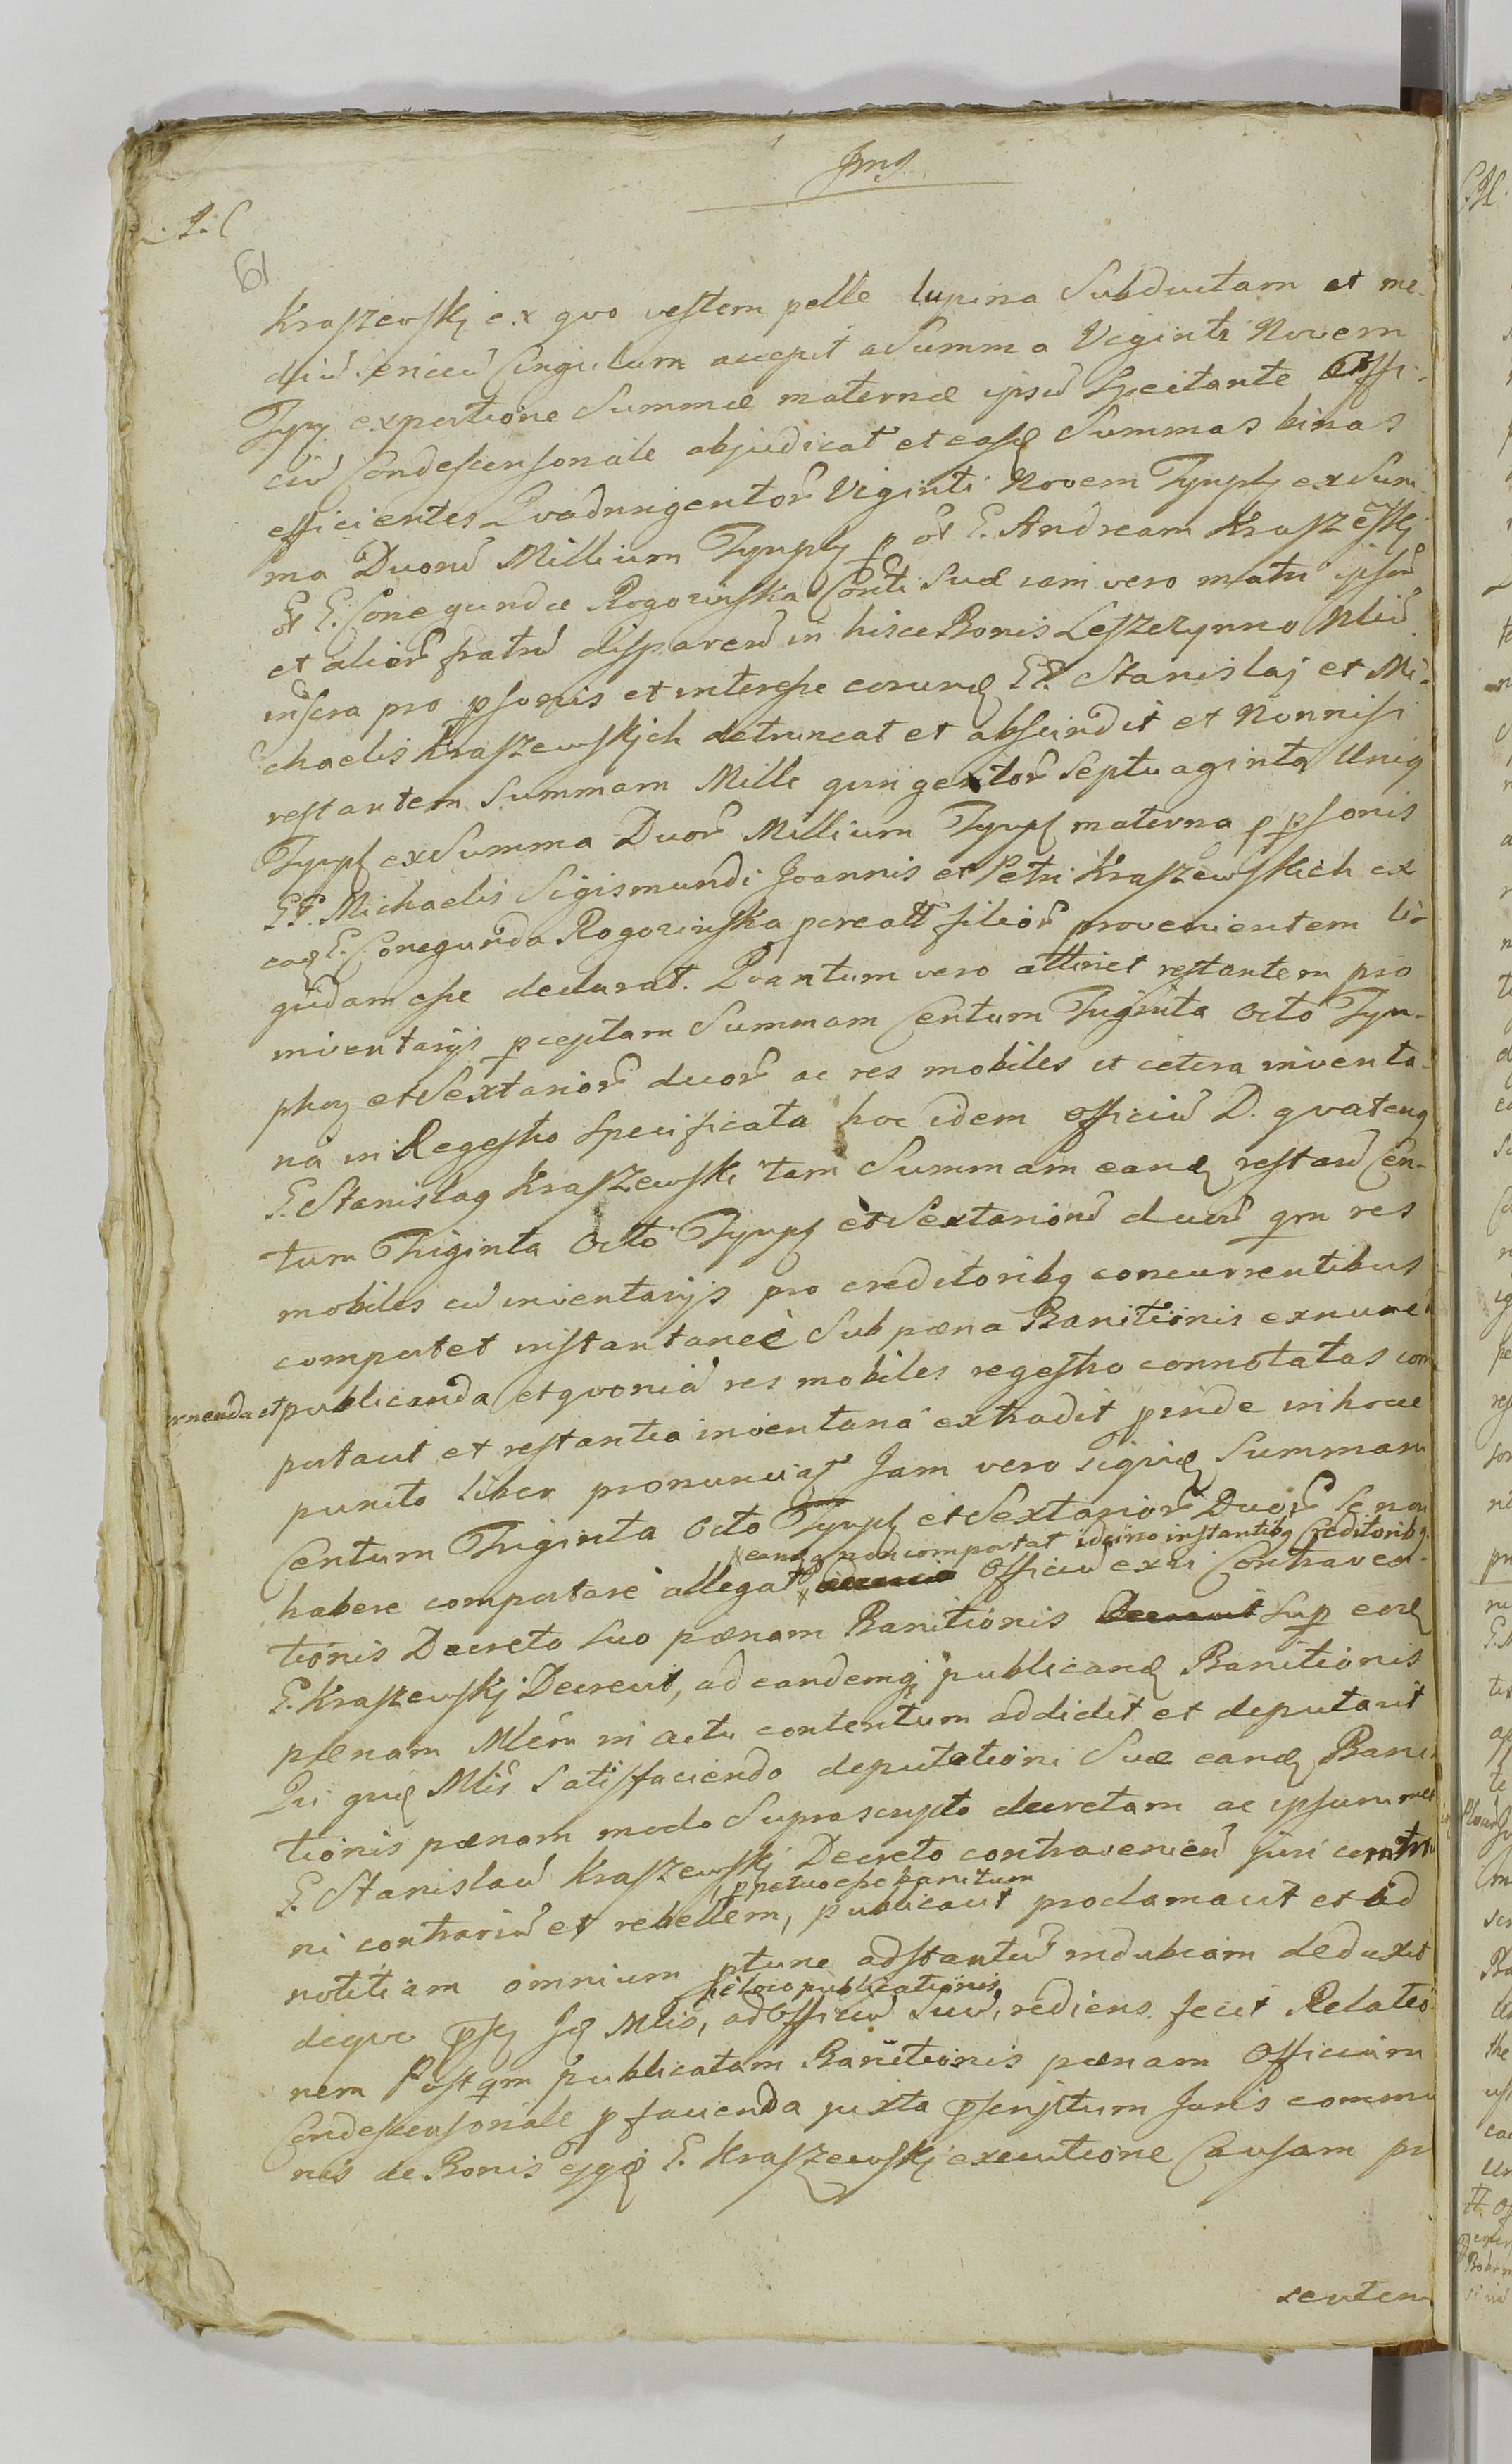 Jmj
61
Kraszewskj ex qvo vestem pelle lupina Subductam et me-
diũ sericeũ Cingulum accepit a Summa Viginti Novem
Tynf. ex portione Summæ maternæ ipsũ Spectante Offi-
ciũ Condescensoriale abjudicat et easq Summas binas
efficientes Qvadringentor Viginti Novem Tynph ex Sum
ma Duorũ Millium Tynph p ol G. Andream Kraszewskj
ol G. Conegundæ Rogozinska Conti Suæ iam vero matri ipsor
et alior fratrũ disparen in hisce Bonis Leszczynno
infera pro psonis et interesse eorunq GG. Stanislaj et Mi-
chaelis Kraszewskich detruncat et abscindit et Nonnisi
restantem Summam Mille quingentor Septuaginta Uniq
Tynf ex Summa Duor Millium Tynf materna p psonis
GG. Michaelis Sigismundi Joannis et Petri Kraszewskich ex
eaq G. Conegunda Rogozinska pcreatt filior provenientem li-
qvidam esse declarat. Qvantum vero attinet restantem pro
inventarijs pceptam Summam Centum Triginta Octo Tyn-
phor et Sextarior duor ac res mobiles et cetera inventa-
ria in Regestro Specificata hoc idem Officiũ D. qvatenq
G. Stanislaq Kraszewski tam Summam eanq restan Cen-
tum Triginta Octo Tynf et Sextariorũ duorũ qm res
mobiles cũ inventarijs pro creditoribq concurrentibus
comportet instantaneè Sub pœna Banitionis exnunc
rnenda et publicanda et qvoniã res mobiles regestro connotatas com
portavit et restantia inventaria extradit pinde in hocce
puncto liber pronunciat Jam vero siqviq Summam
Centum Triginta Octo Tynf et Sextarior Duor Se non
eanqq non comportat idcirco instantibq Creditoribq
habere comportare allegat Officiũ ex vi Contraven-
tionis Decreto Suo pœnam Banitionis Sup eoq
G. Kraszewskj Decrevit, ad eandemq publicanq Banitionis
pœnam Mlem in actu contentum addidit et deputavit
Qui qviq Mlis Satisfaciendo deputationi Suæ eanq Bani
tionis pœnam modo Suprascripto decretam ac ipsummet
G. Stanislaũ Kraszewskj Decreto contravenien juri
ppetuo esse banitum
ni contrariũ et rebellem, publicavit proclamavit et ad
notitiam omnium ptunc adstantiũ indubiam deduxit
loco publicationis
deqve Mlis, ad Officiũ Suũ, rediens fecit Relatio
nem Postqm publicatam Banitionis pœnam Officium
Condescensoriale p facienda juxta pscriptum Juris commu
nis de Bonis ejqq G. Kraszewskj executione Causam pr
senten